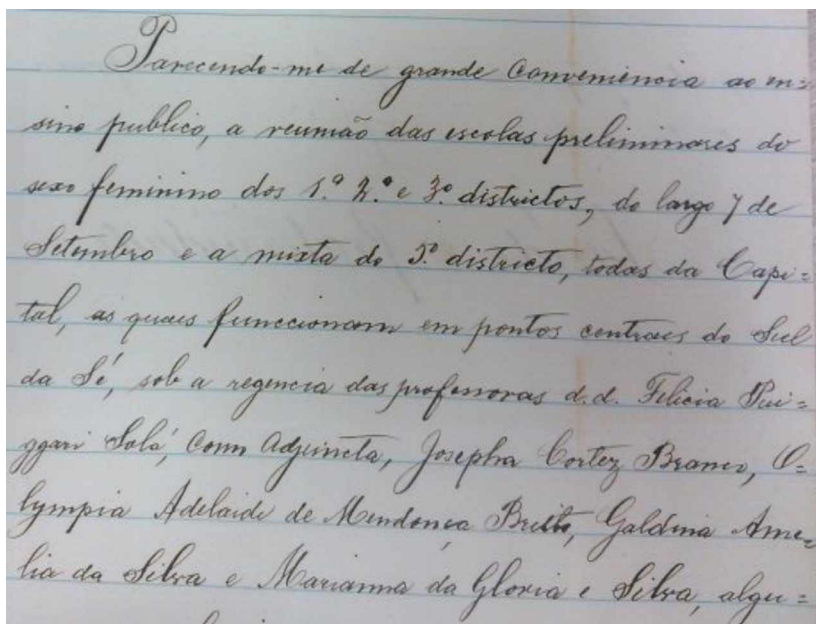 Parecendo-me de grande Conveniencia ao en=
sino publico, a reunião das escolas preliminares do
sexo feminino dos 1.º 2.º e 3.º districtos, do largo 7 de
Setembro e a mixta do 5.º districto, todas da Capi=
tal, as quaes funccionam em pontos centraes do Sul
da Sé, sob a regencia das professoras d.d. Felicia Pui=
ggari Solá, com adjuncta, Josepha Cortez Branco, O=
lympia Adelaide de Mendonça Britto, Galdina Ame=
lia da Silva e Marianna da Gloria e Silva, algu=